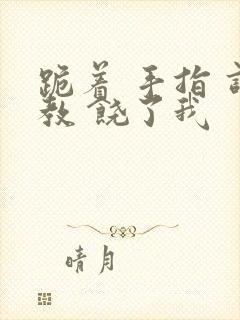 跪着 手指 训
教 饶了我
晴月